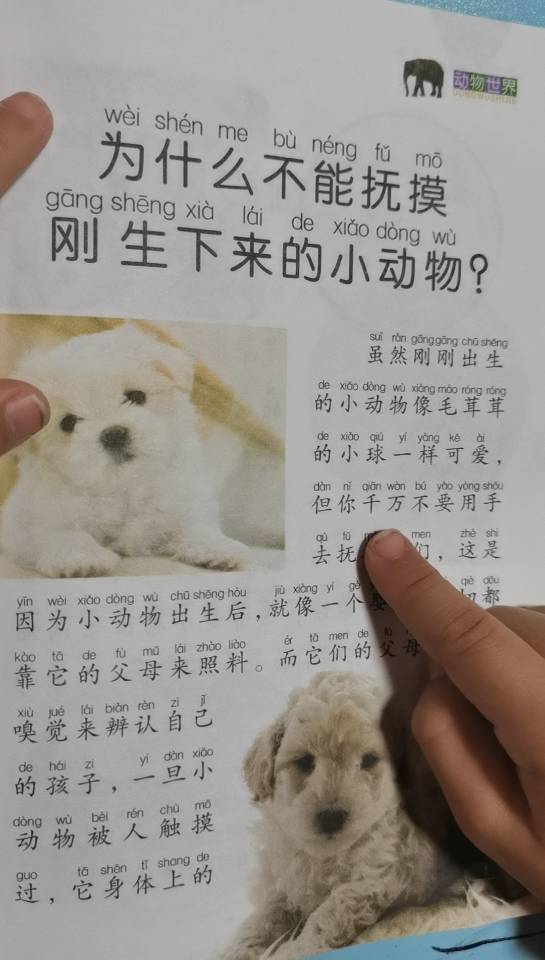 动物世界
DONGWUSHIJIE
wèi shén me bù néng fǔ mō
为什么不能抚摸
gāng shēng xià lái de xiǎo dòng wù
刚生下来的小动物?
suī rán gāng gāng chū shēng
虽然刚刚出生
de xiǎo dòng wù xiàng máo róng róng
的小动物像毛茸茸
de xiǎo qiú yí yàng kě ài
的小球一样可爱，
dàn nǐ qiān wàn bú yào yòng shǒu
但你千万不要用手
qù fǔ men zhè shì
去抚 们，这是
yīn wèi xiǎo dòng wù chū shēng hòu jiù xiàng yí gè qiè dōu
因为小动物出生后，就像一个 切都
kào tā de fù mǔ lái zhào liào ér tā men de fù
靠它的父母来照料。而它们的父母
xiù jué lái biàn rèn zì jǐ
嗅觉来辨认自己
de hái zi yí dàn xiǎo
的孩子，一旦小
dòng wù bèi rén chù mō
动物被人触摸
guo tā shēn tǐ shang de
过，它身体上的